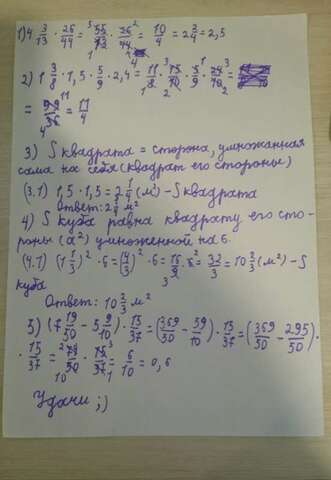 1) 4 3/13 · 26/44 = 55/13 · 26/44 = 10/4 = 2 2/4 = 2,5
2) 1 3/8 · 1,5 · 5/9 · 2,4 = 11/8 · 15/10 · 5/9 · 24/10 =
= 99/36 = 11/4
3) S квадрата = сторона, умноженная
сама на себя (квадрат его стороны)
(3.1) 1,5 · 1,5 = 2 1/4 (м²) - S квадрата
ответ: 2 1/4 м²
4) S куба равна квадрату его сто-
роны (a²) умноженной на 6.
(4.1) (1 1/3)² · 6 = (4/3)² · 6 = 16/9 · 6 = 32/3 = 10 2/3 (м²) - S
куба
Ответ: 10 2/3 м²
5) (7 19/50 - 5 9/10) · 15/37 = (369/50 - 59/10) · 15/37 = (369/50 - 295/50) ·
· 15/37 = 74/50 · 15/37 = 6/10 = 0,6
Удачи ;)